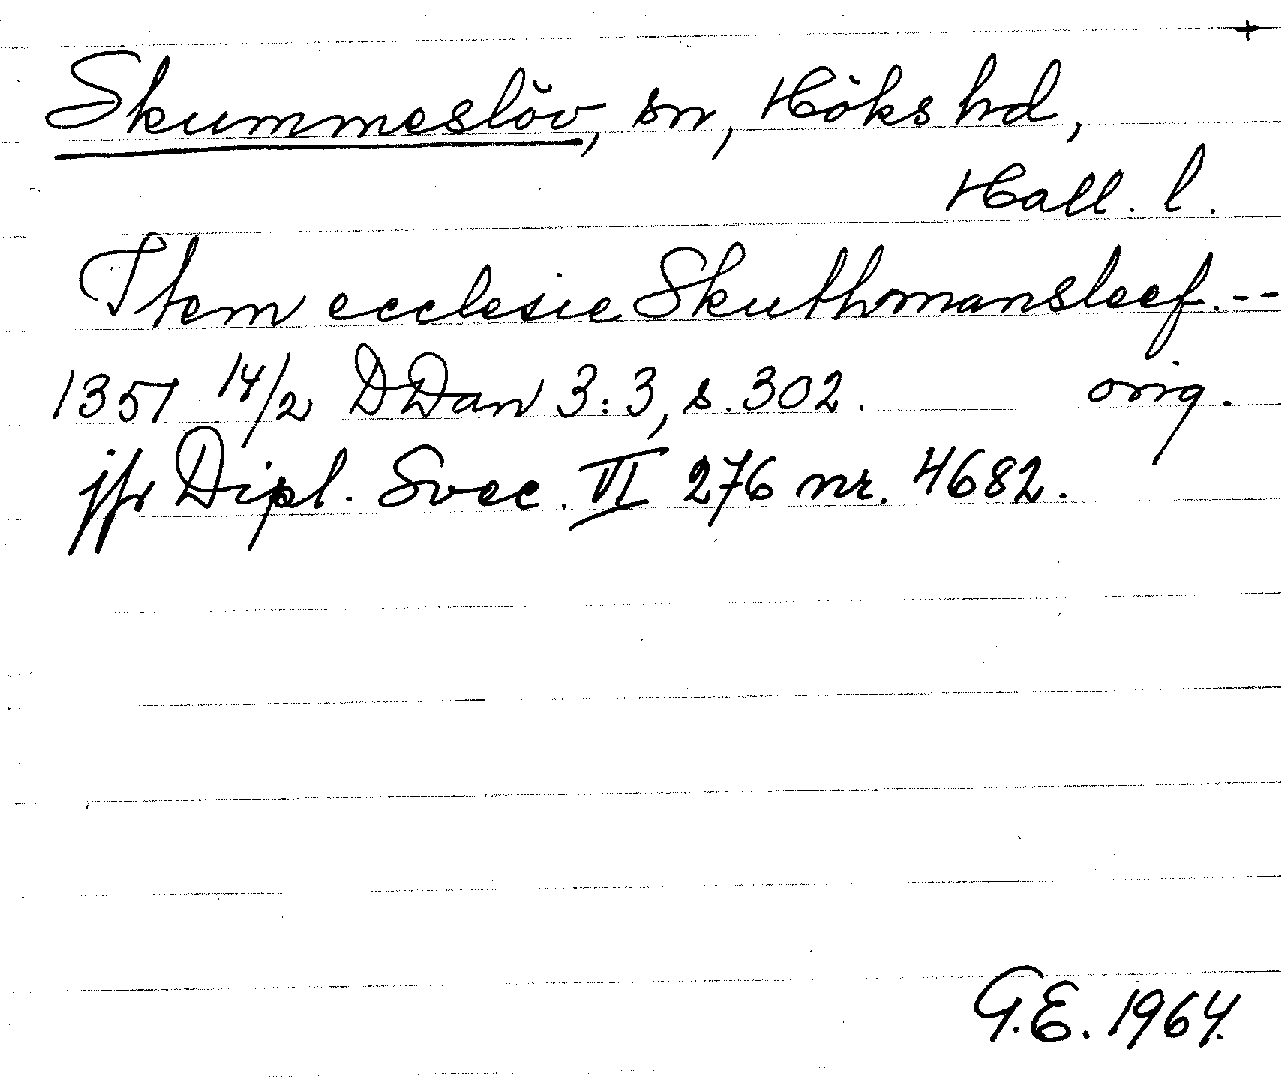 +
Skummeslöv, sn, Höks hd,
Hall. l.
Item ecclesie Skuthmansleef. --
1351 14/2 DDan 3:3, s. 302. orig.
jfr Dipl. Svec. VI 276 nr. 4682.
G.E. 1964.